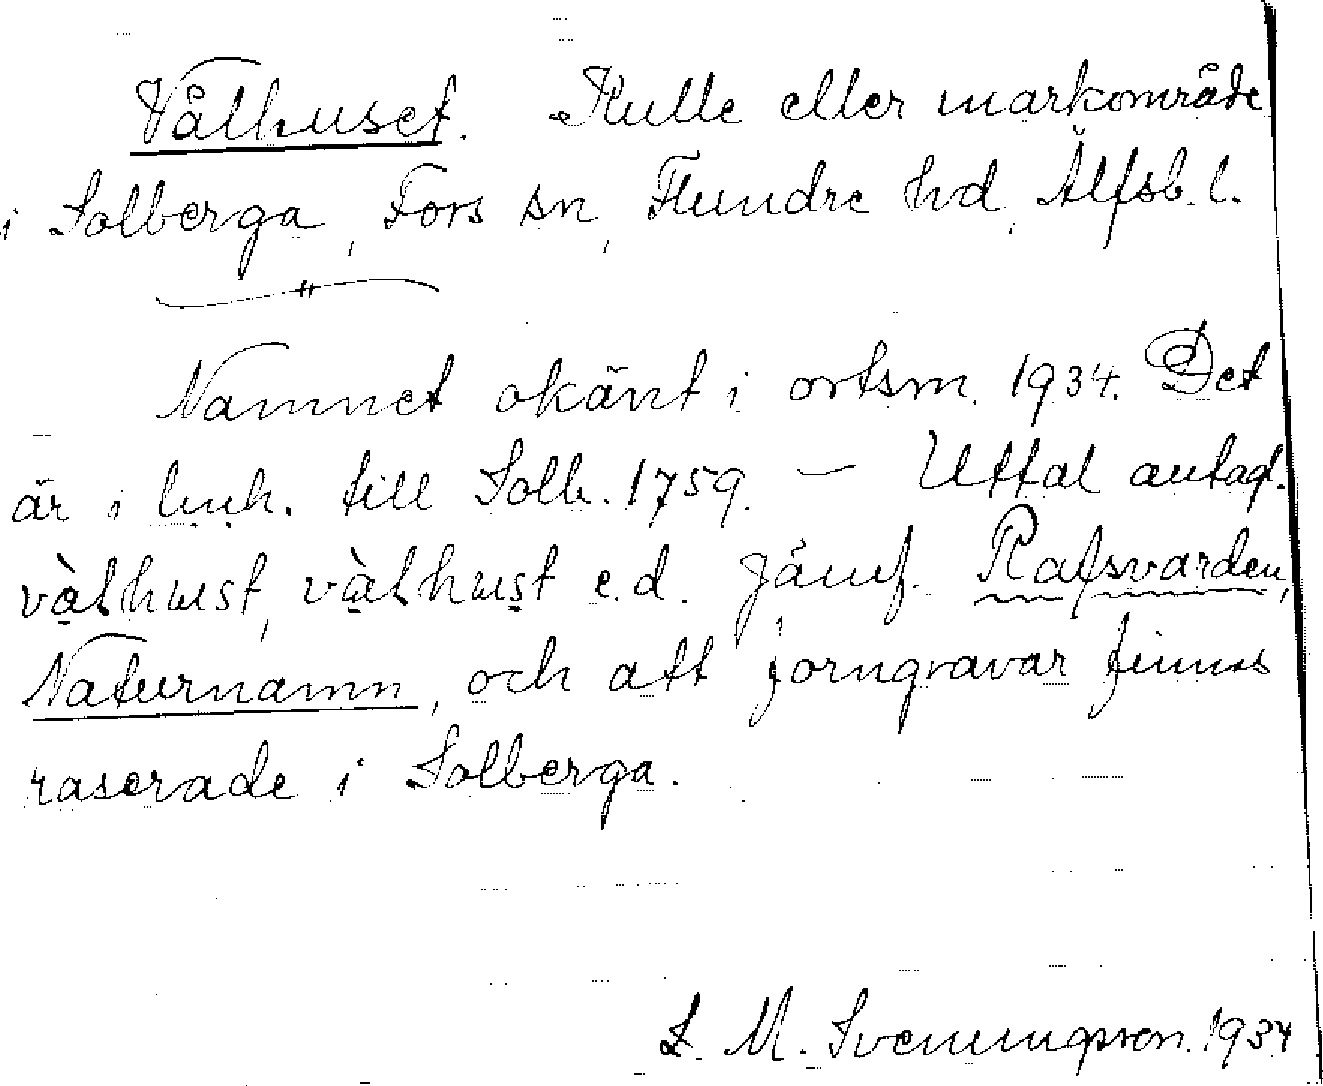 Vålhuset. Kulle eller markområde
i Solberga, Fors sn, Flundre hd, Älfsb. l.
Namnet okänt i ortsm. 1934. Det
är i till Solb. 1759. — Uttal antagl.
vàlhust, vàlhust e.d. Jämf. Rafsvarden,
Naturnamn, och att forngravar finnas
raserade i Solberga.
L. M. Svenungsson. 1934